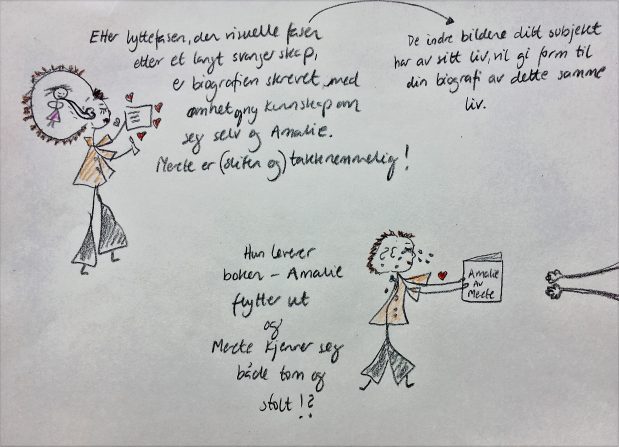 Etter lyttefasen, den visuelle fasen
etter et langt svangerskap,
er biografien skrevet, med
ømhet og ny kunnskap om
seg selv og Amalie.
Merete er (sliten og) takknemmelig!
De indre bildene ditt subjekt
har av sitt liv, vil gi form til
din biografi av dette samme
liv.
Hun leverer
boken – Amalie
flytter ut
og
Merete kjenner seg
både tom og
stolt!?
Amalie
Av
Merete